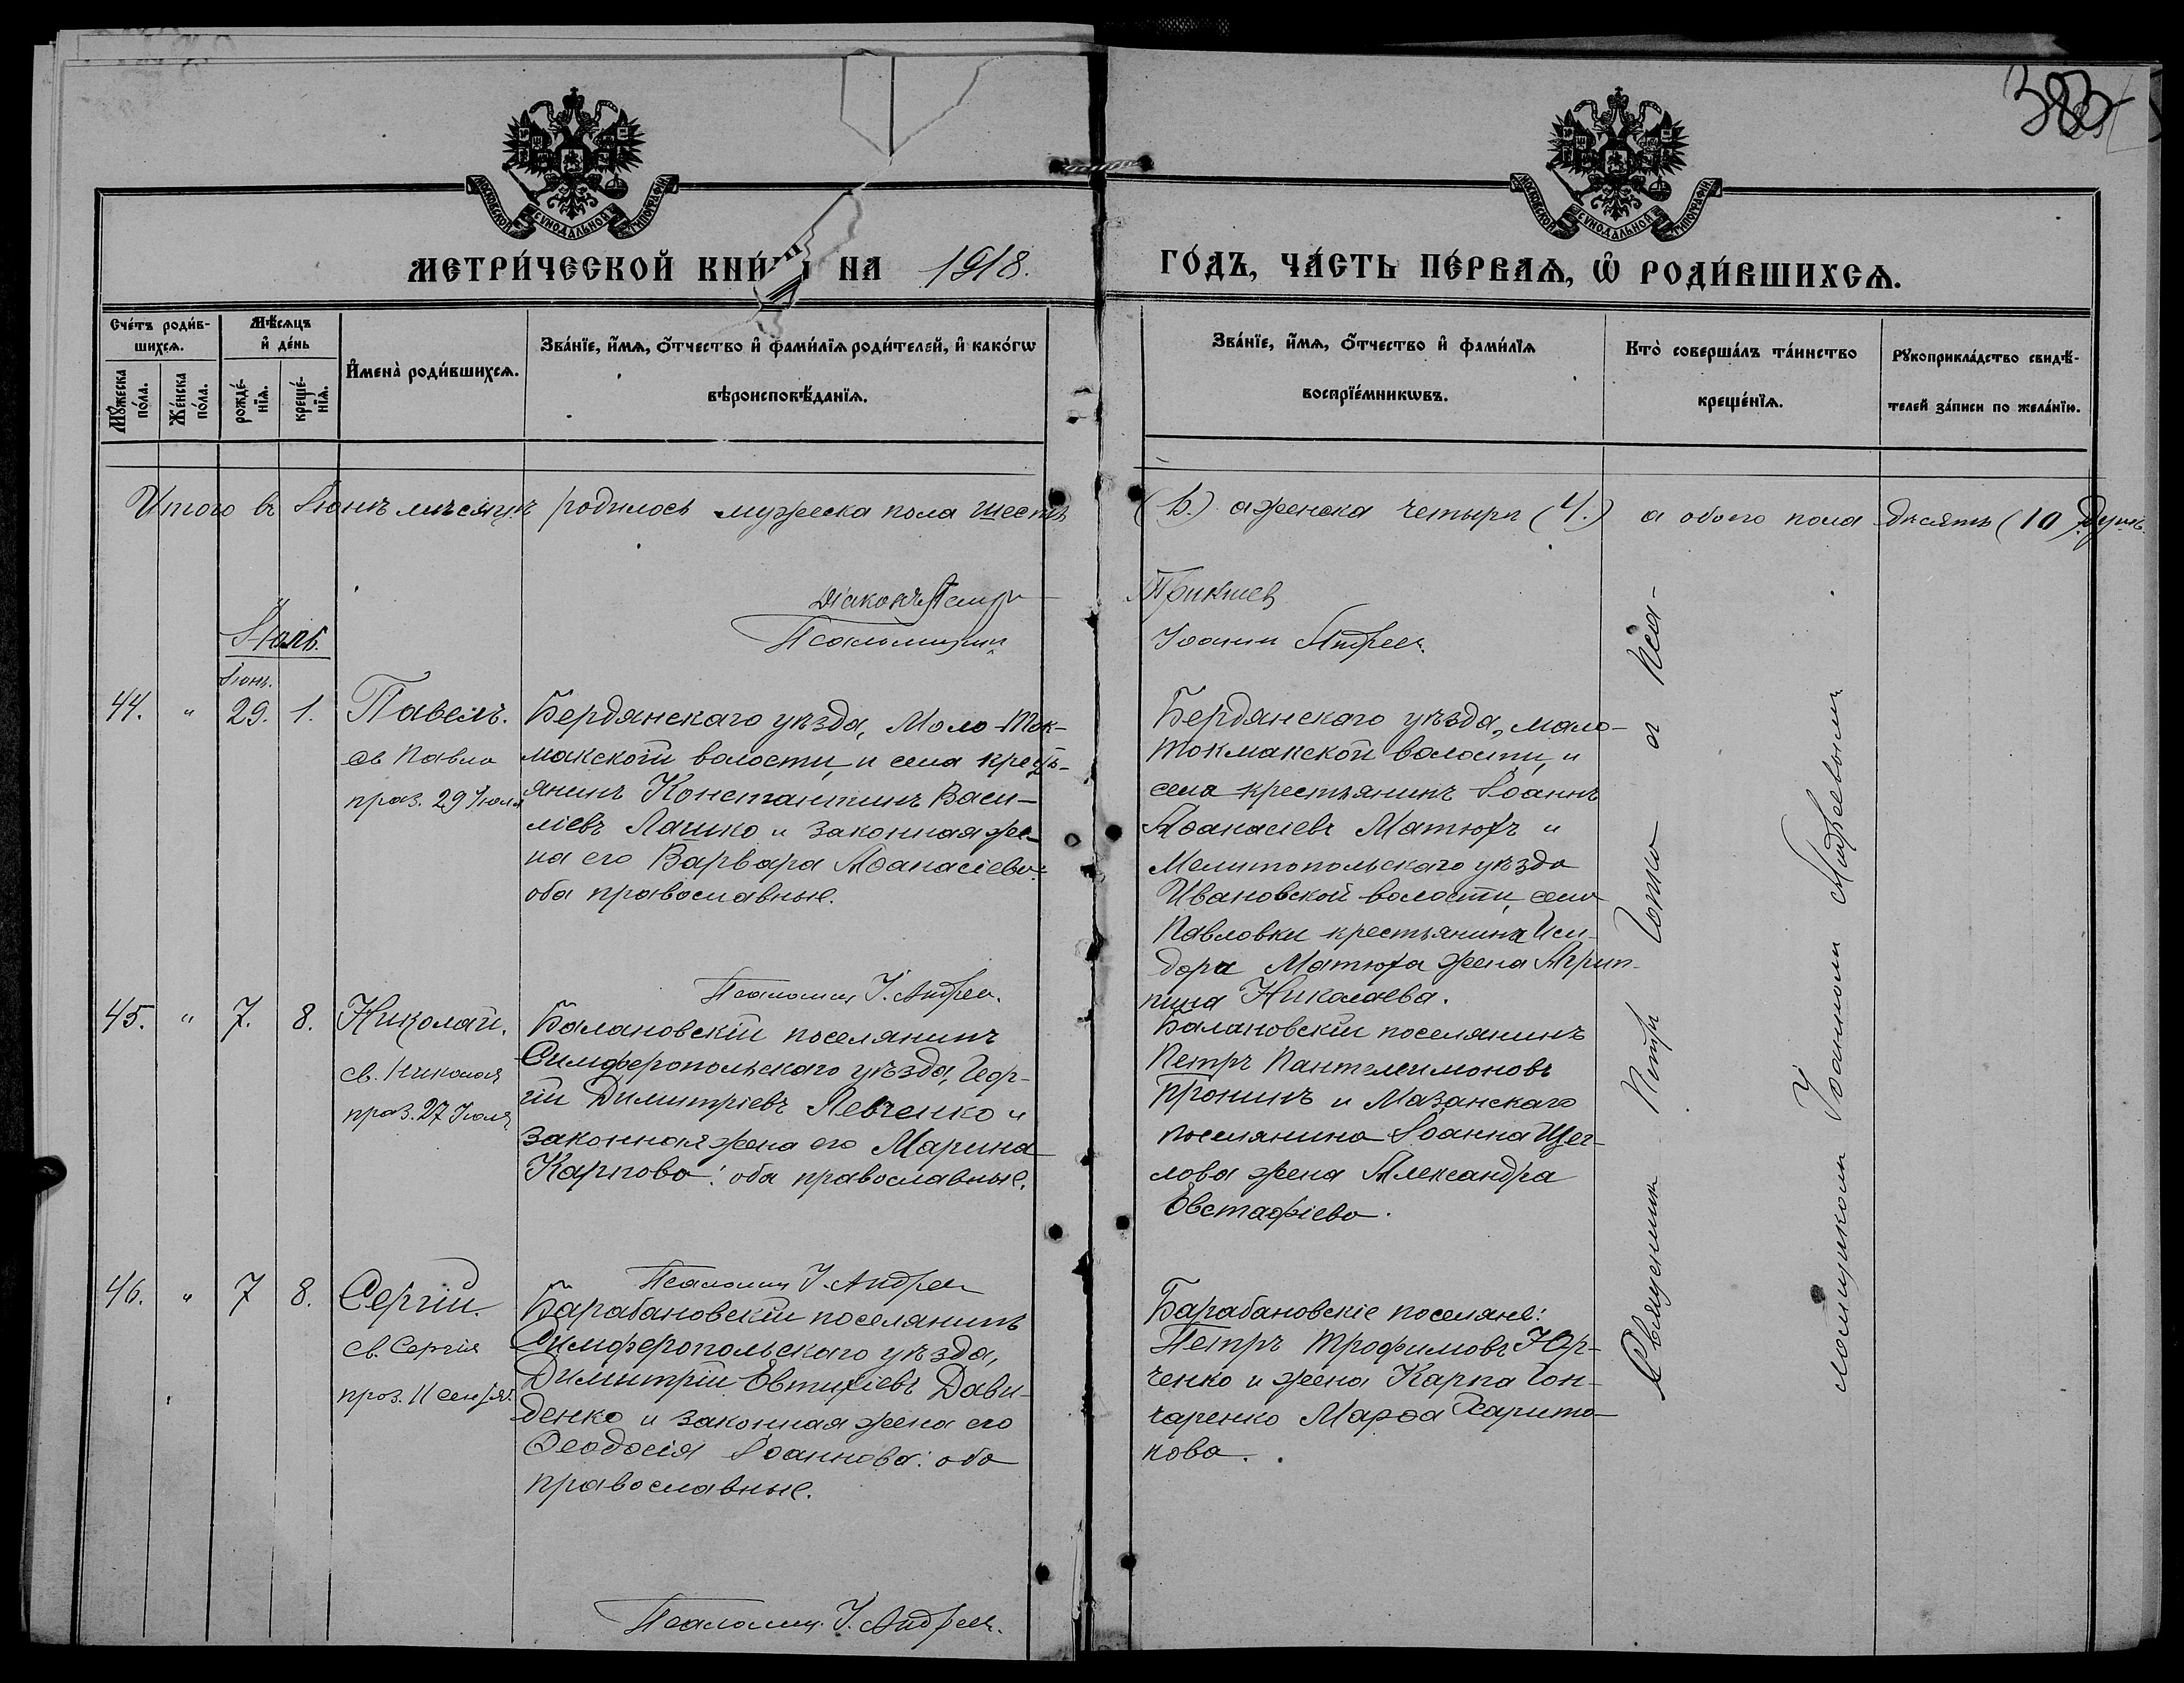 383
МОСКОВСКОЙ СѴНОДАЛЬНОЙ ТИПОГРАФІИ
МОСКОВСКОЙ СѴНОДАЛЬНОЙ ТИПОГРАФІИ
МЕТРИ́ЧЕСКОЙ КНИ́ НА 1918.
ГО́ДЪ, ЧА́СТЬ ПЕ́РВАѦ, Ѽ РОДИ́ВШИХСѦ.
Сче́тъ роди́в-
шихсѧ.
Мꙋ́жеска
по́ла.
Же́нска
по́ла.
Мѣ́сѧцъ
и҆ де́нь
рожде́-
нїѧ.
креще́-
нїѧ.
И҆мена̀ роди́вшихсѧ.
Зва́нїе, и҆́мѧ, ѻ҆́тчество и҆ фами́лїѧ роди́телей, и҆ како́гѡ
вѣроисповѣ́данїѧ.
Зва́нїе, и҆́мѧ, ѻ҆́тчество и҆ фами́лїѧ
воспрїе́мникѡвъ.
Кто̀ соверша́лъ та́инство
креще́нїѧ.
Рꙋкоприкла́дство свидѣ́-
телей за́писи по жела́нїю.
Итого въ Іюнѣ мѣсяцѣ родилось мужеска пола шесть
(6.) а женска четыри (4.) а обоего пола десять (10) душъ.
Діаконъ Петръ
Псаломщикъ
Іоаннъ Андреев.
Іюль.
Іюнь.
44. " 29. 1. Павелъ.
св Павла
праз. 29 Іюня
Бердянскаго уѣзда, Мало-Ток-
макской волости, и села кресть-
янинъ Константинъ Васи-
ліевъ Лашко и законная же-
на его Варвара Аѳанасіева:
оба православные.
Бердянскаго уѣзда, мало-
токмакской волости, и
села крестьянинъ Іоаннъ
Аѳанасіевъ Матюхъ и
Мелитопольскаго уѣзда
Ивановской волости, села
Павловки крестьянина Иси-
дора Матюха жена Агрип-
пина Николаева.
Псаломщ. І. Андреев.
45. " 7. 8. Николай.
св. Николая
праз. 27 Іюля
Балановскій поселянинъ
Симферопольскаго уѣзда, Геор-
гій Димитріевъ Левченко и
законная жена его Марина
Карпова: оба православные.
Балановскій поселянинъ
Петръ Пантелеимоновъ
Пронинъ и Мазанскаго
поселянина Іоанна Щег-
лова жена Александра
Евстафіева.
Псаломщ. І. Андреев
46. " 7 8. Сергій.
св. Сергія
праз. 11 сентяб.
Барабановскій поселянинъ
Симферопольскаго уѣзда,
Димитрій Евтихіевъ Дави-
денко и законная жена его
Ѳеодосія Іоаннова: оба
православные.
Барабановскіе поселяне:
Петръ Трофимовъ Юр-
ченко и жена Карпа Гон-
чаренко Марѳа Харито-
нова.
Псаломщ. І. Андреев.
Священникъ Петръ с пса-
ломщикомъ Іоанномъ Андреевымъ